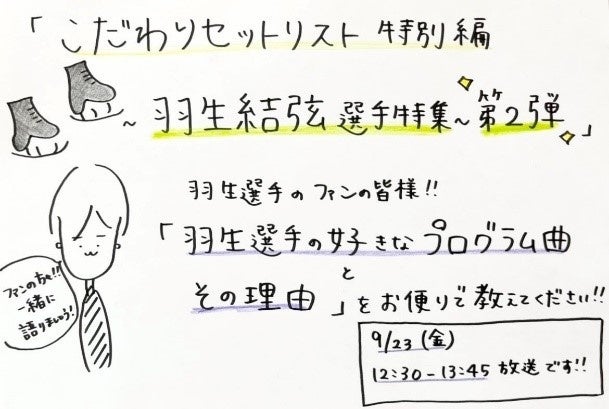 「こだわりセットリスト 特別編
~ 羽生結弦選手特集~ 第2弾」
羽生選手の ファンの皆様!!
「羽生選手の好きなプログラム曲
と
その理由」をお便りで教えてください!!
ファンの方々!!
一緒に
語りましょう!
9/23 (金)
12:30-13:45 放送です!!